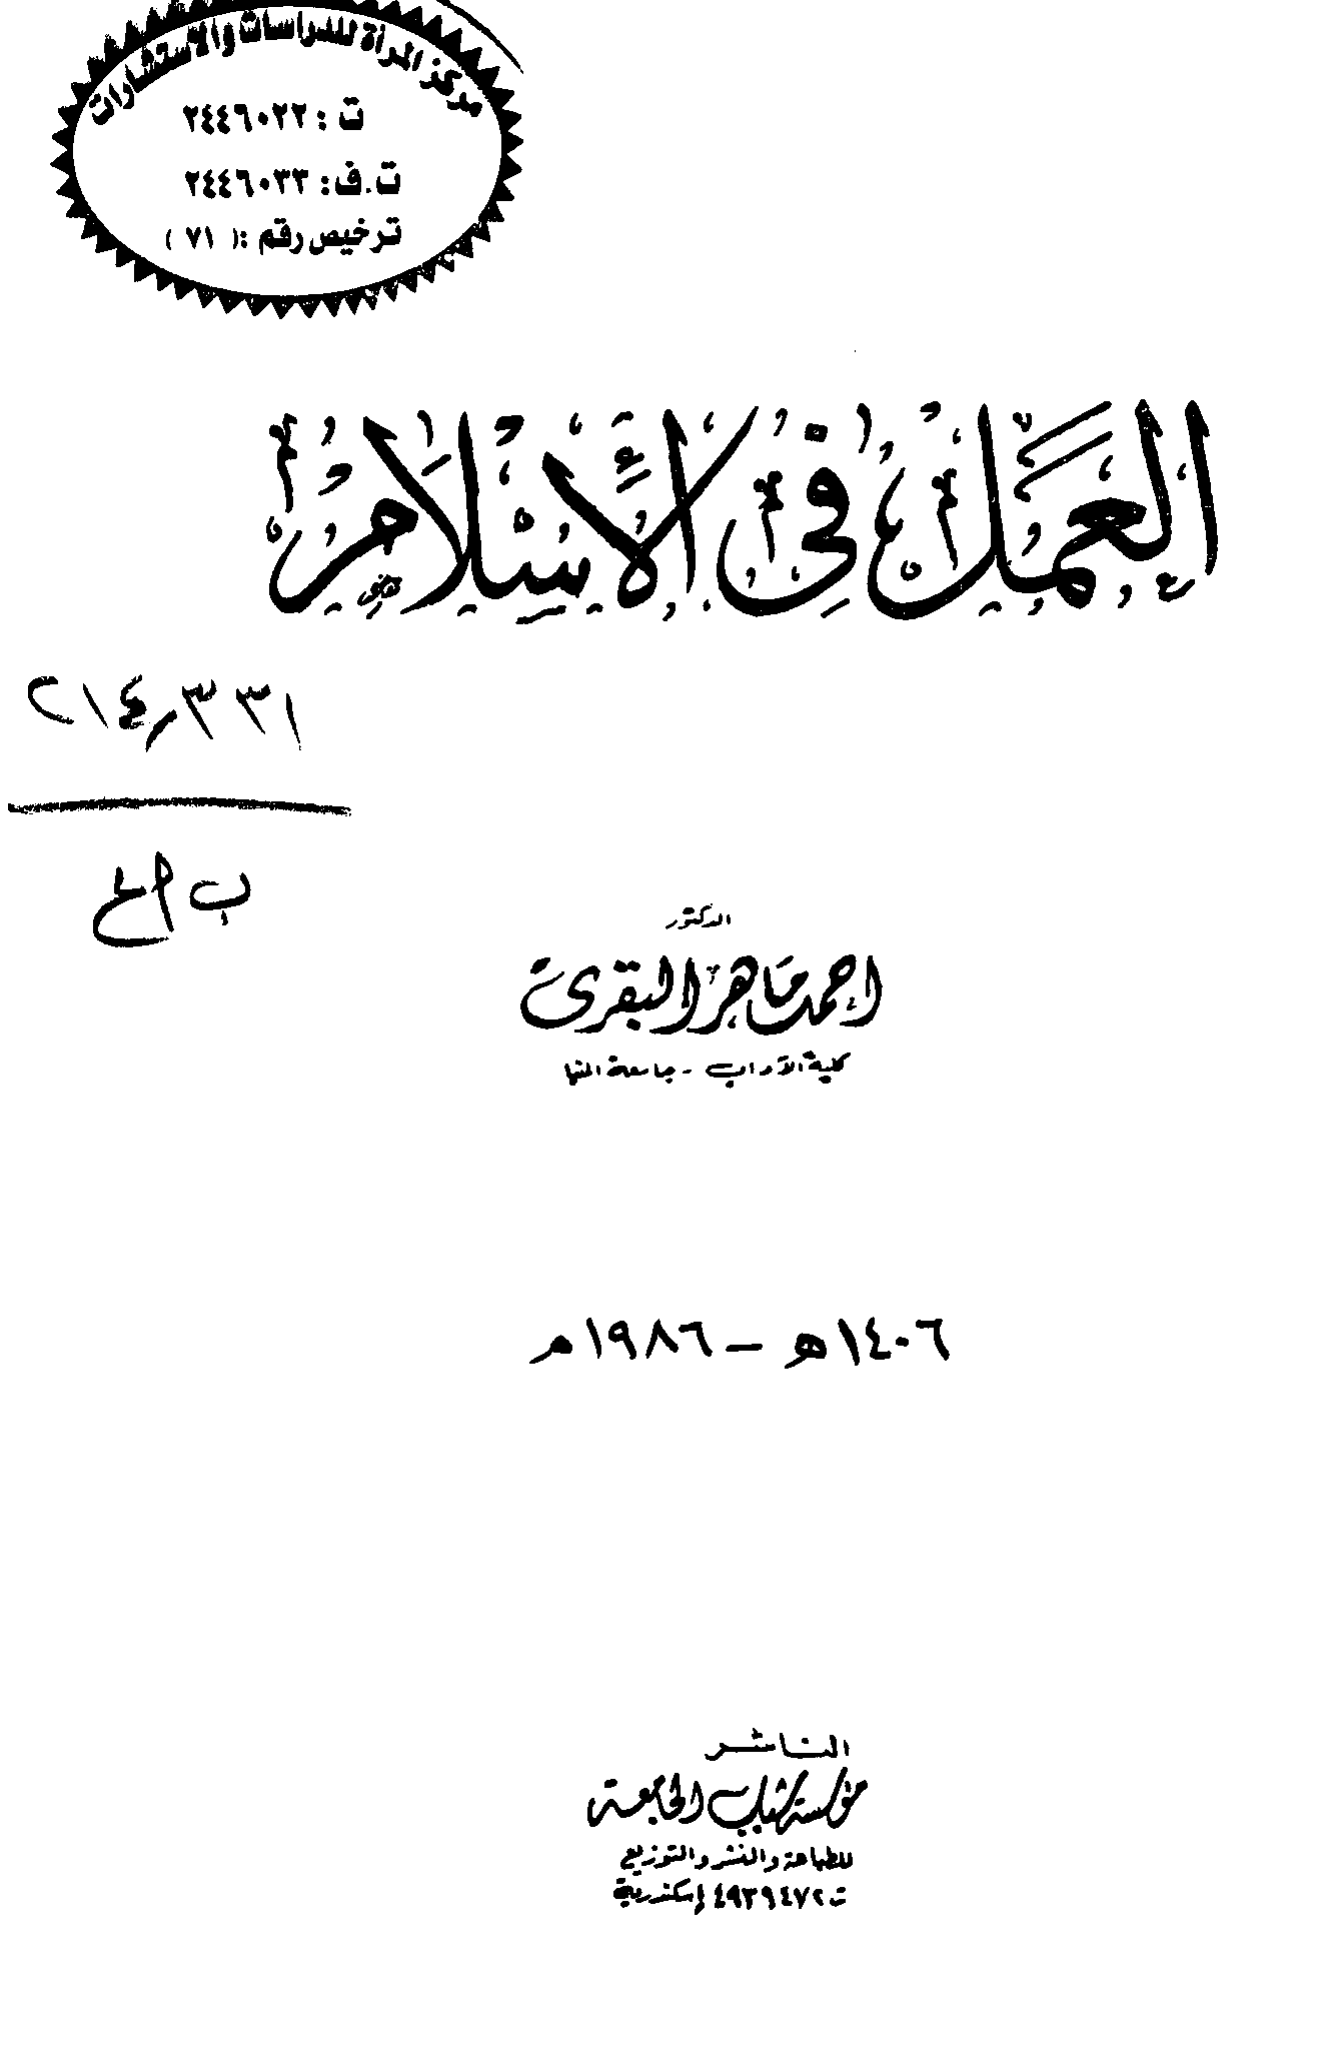 مركز المرأة للدراسات والاستشارات
ت : ٢٤٤٦٠٢٢
ت.ف: ٢٤٤٦٠٣٣
ترخيص رقم :( ٧١ )
العمل في الإسلام
٢١٤,٣٣١
ب ا ع
الدكتور
احمد ماهر البقرى
كلية الآداب - جامعة المنيا
١٤٠٦هـ – ١٩٨٦م
الناشر
مؤسسة شباب الجامعة
للطباعة والنشر والتوزيع
ت ٤٩٣٩٤٧٢ إسكندرية